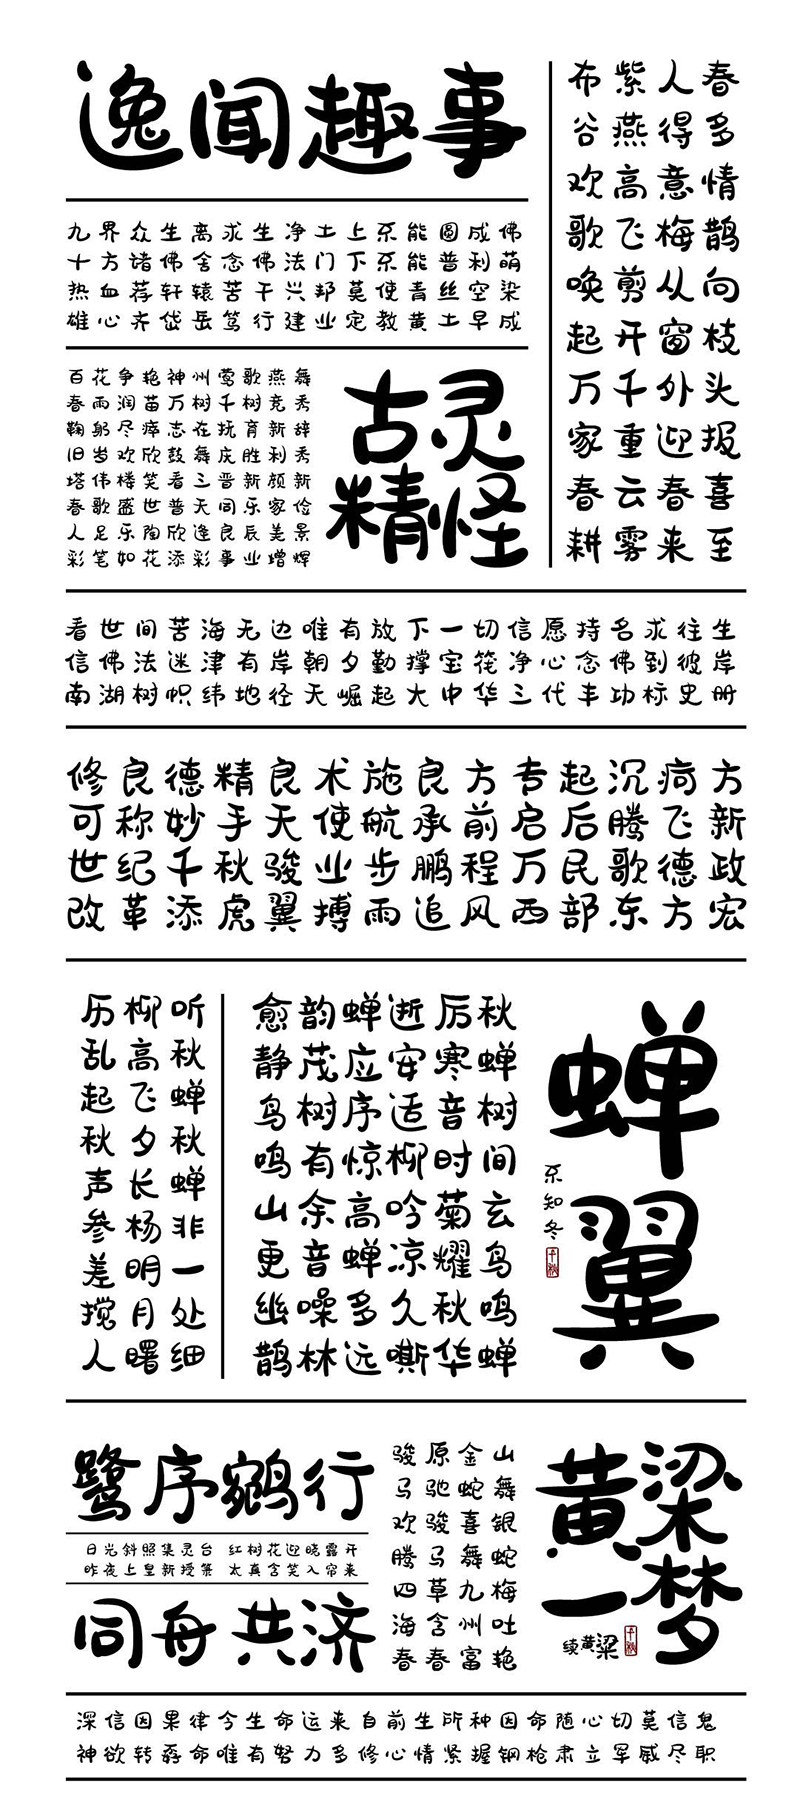 逸闻趣事
九界众生离求生净土上乐能圆成佛
十方诸佛舍念佛法门下乐能普利萌
热血荐轩辕苦干兴邦莫使青丝空染
雄心齐岱岳笃行建业定教黄土早成
春多情鹊向枝头报喜至
人得意梅从窗外迎春来
紫燕高飞剪开千重云雾
布谷欢歌唤起万家春耕
百花争艳神州莺歌燕舞
春雨润苗万树千树竞秀
鞠躬尽瘁志在抚育新辞
旧岁欢欣鼓舞庆胜利秀
塔伟楼笑看三晋新颜新
春歌盛世普天同乐家俭
人足乐陶欣逢良辰美景
彩笔如花添彩事业增辉
古灵
精怪
看世间苦海无边唯有放下一切信愿持名求往生
信佛法迷津有岸朝夕勤撑宝筏净心念佛到彼岸
南湖树帜纬地径天崛起大中华三代丰功标史册
修良德精良术施良方专起沉疴方
可称妙手天使航承前启后腾飞新
世纪千秋骏业步鹏程万民歌德政
改革添虎翼搏雨追风西部东方宏
蝉翼
乐知冬
秋蝉树间玄鸟鸣蝉
厉寒音时菊耀秋华
逝安适柳吟凉久嘶
蝉应序惊高蝉多远
韵茂树有余音噪林
愈静鸟鸣山更幽鹊
听秋蝉秋蝉非一处细
柳高飞夕长杨明月曙
历乱起秋声参差搅人
鹭序鹓行
日光斜照集灵台 红树花迎晓露开
昨夜上皇新授箓 太真含笑入帘来
同舟共济
山舞银蛇梅吐艳
金蛇喜舞九州富
原驰骏马草含春
骏马欢腾四海春
黄粱
一梦
续黄粱
深信因果律今生命运来自前生所种因命随心切莫信鬼
神欲转孬命唯有努力多修心情紧握钢枪肃立军威尽职